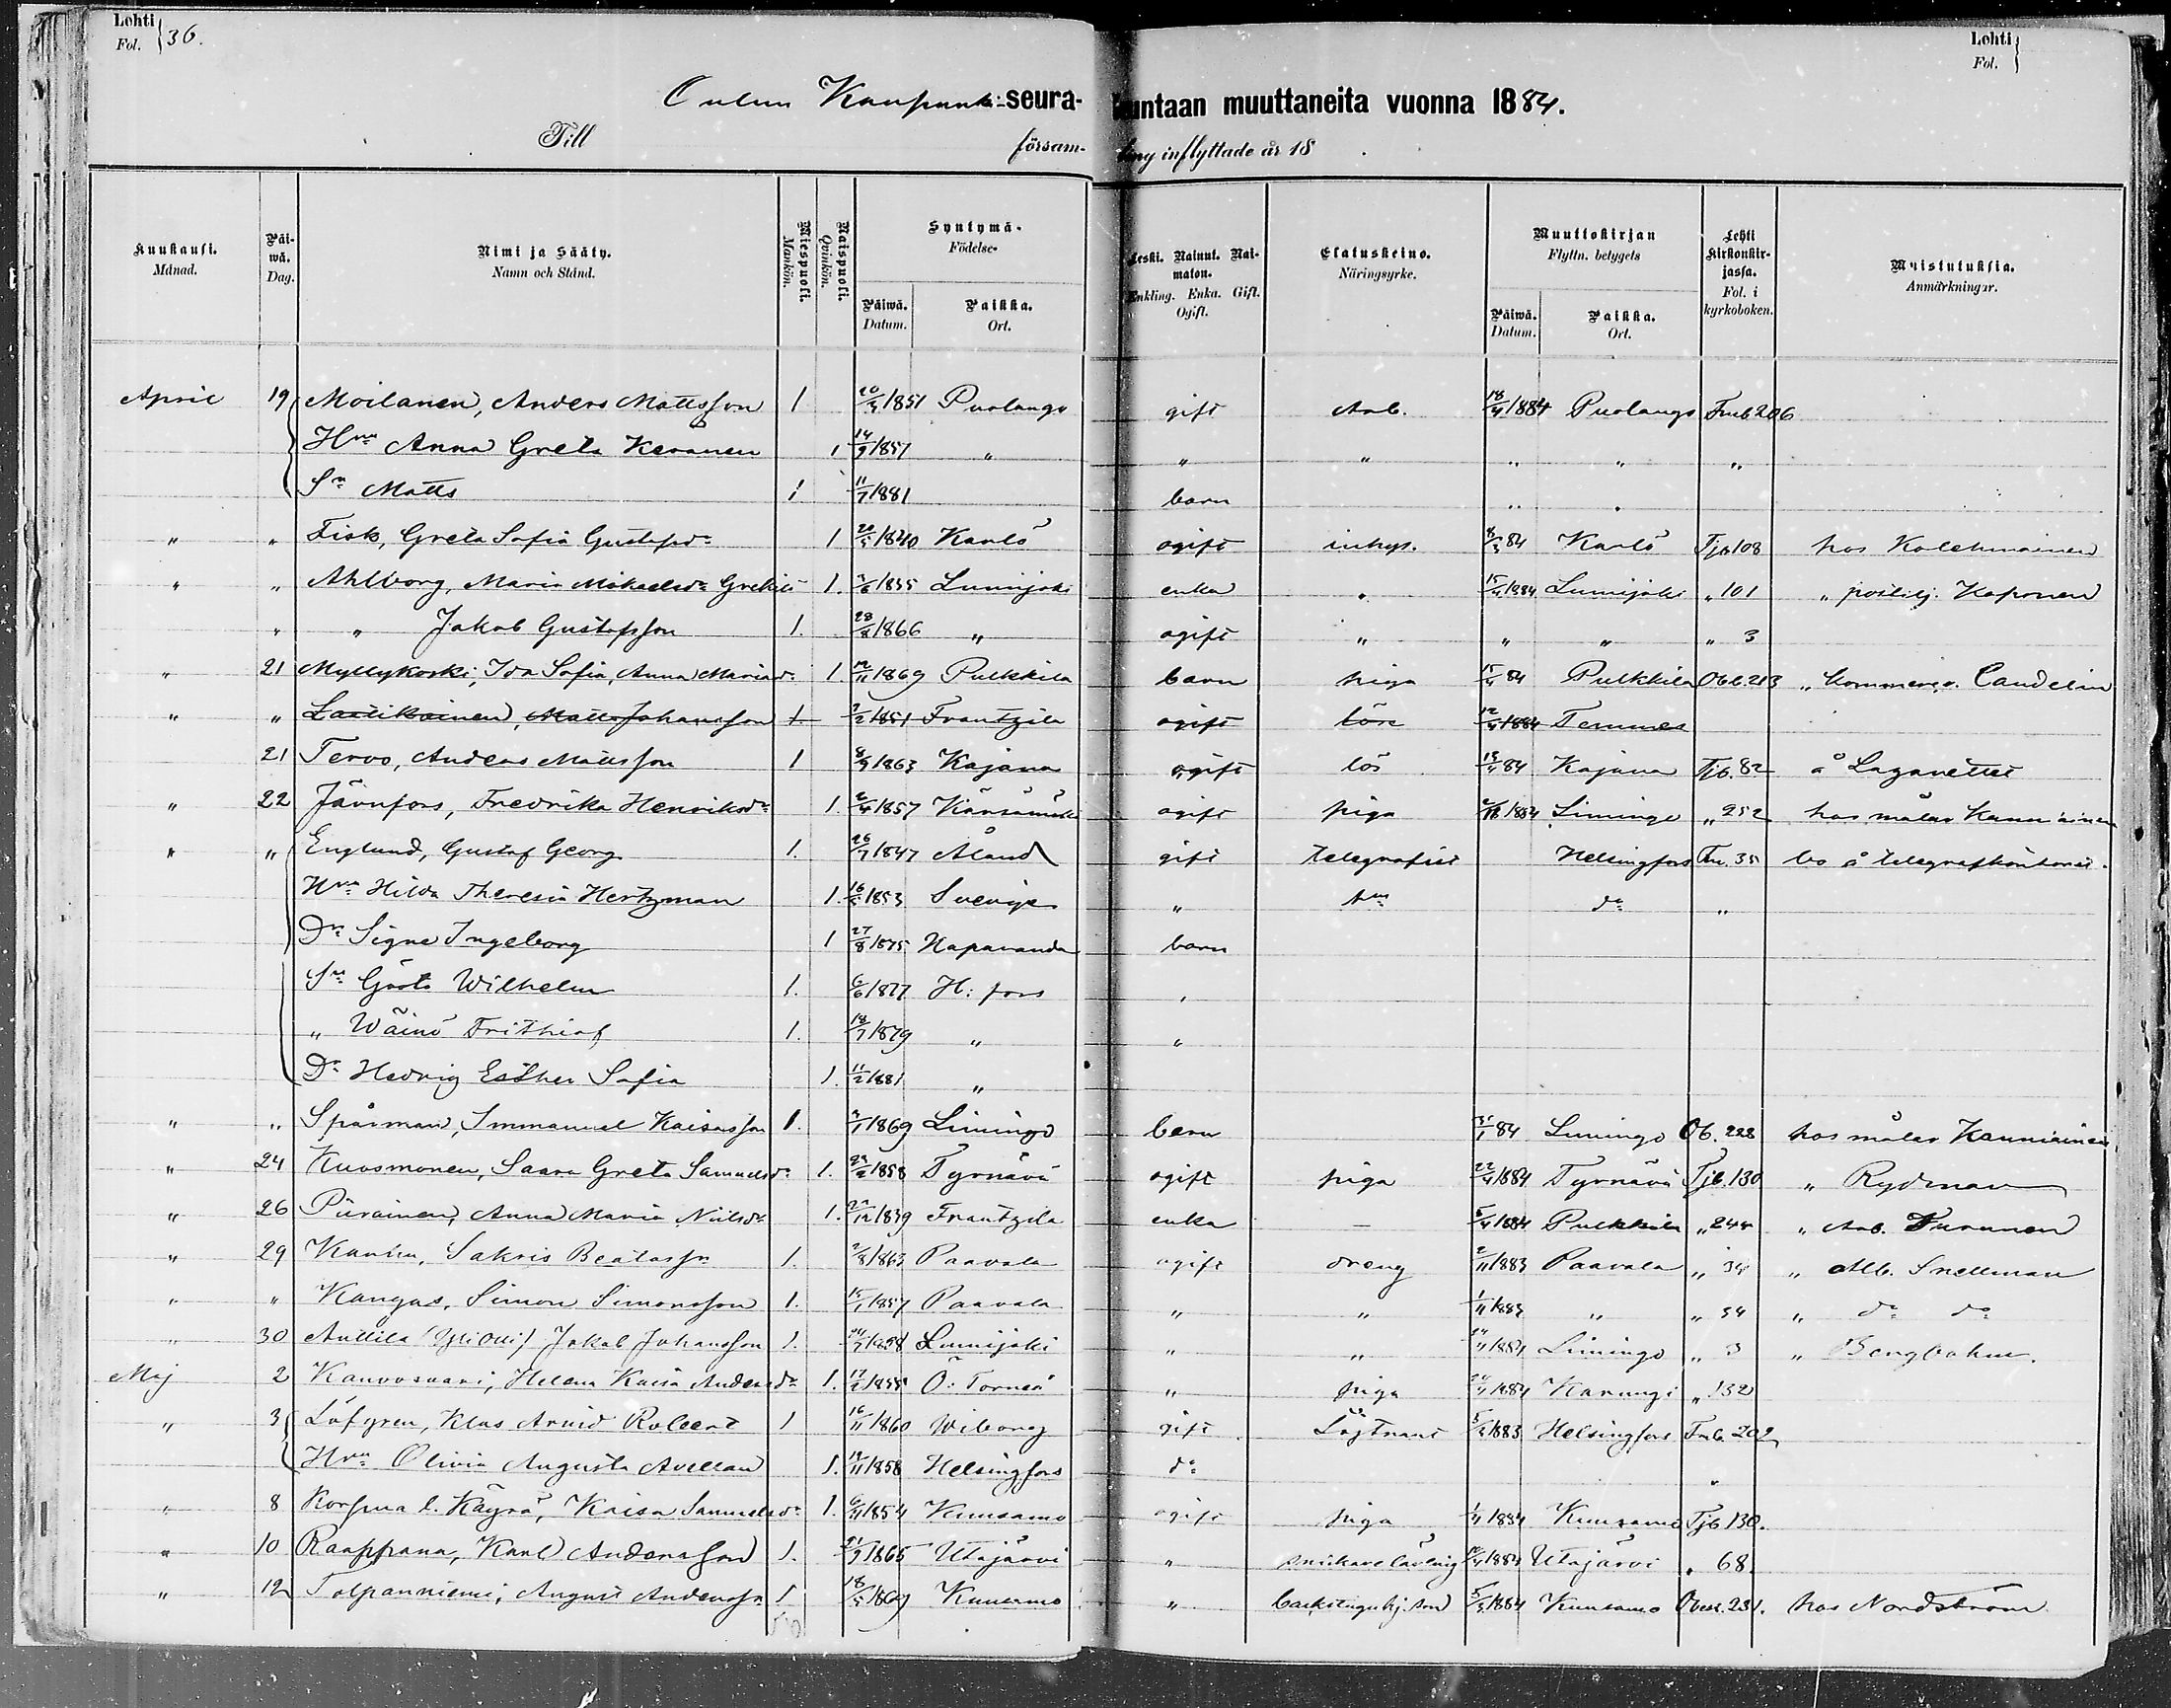 Lohti Fol. } 36.
Lohti Fol. }
Oulun Kaupunki-seurakuntaan muuttaneita vuonna 1884.
Till församling inflyttade år 18
Kuukausi. Månad. Päiwä. Dag. Nimi ja Sääty. Namn och Stånd. Miespuoli. Mankön. Naispuoli. Qvinkön. Syntymä- Födelse- Päiwä. Datum. Paikka. Ort. Leski. Nainut. Naimaton. Enkling. Enka. Gift. Ogift. Elatuskeino. Näringsyrke. Muuttokirjan Flyttn. betygets Päiwä. Datum. Paikka. Ort. Lehti Kirkonkirjassa. Fol. i kyrkoboken. Muistutuksia. Anmärkningar.
April 19 Moilanen, Anders Mattsson 1 20/3 1851 Puolango gift Arb. 18/4 1884 Puolango Fmb 206
Hru Anna Greta Keranen 1 14/9 1857 " " " " " "
Sn Matts 1 11/7 1881 barn " "
" " Fisk, Greta Sofia Gustafsdr 1 20/5 1840 Karlö ogift inhys. 8/3 84 Karlö Tjb 108 hos Kolehmainen
" " Ahlborg, Maria Mikaelsdr 1. 3/6 1835 Lumijoki enka " 15/4 1884 Lumijoki " 101 " Kaponen
" " Jakob Gustafsson 1. 28/8 1866 " ogift " " " " 3
" 21 Myllykoski, Ida Sofia, Anna Mariadr 1. 12/11 1869 Pulkkila barn piga 15/4 84 Pulkkila Obb. 213 " Kommerser. Candelin
" " Lastikainen, Matts Johansson 1. 3/2 1851 Frantzila ogift 12/4 1884 Temmes
21 Tervo, Anders Mattsson 1 8/9 1863 Kajana ogift lös 13/4 84 Kajana Tjb. 82 å Lazarettet
" 22 Järnfors, Fredrika Henriksdr 1. 2/4 1857 Kärsämäki ogift piga 1884 Limingo " 252 hos målar Kanniainen
" " Englund, Gustaf Georg 1. 26/7 1847 Åland gift telegrafist Helsingfors Fm. 35 bo å telegrafkontoret.
Hru Hilda Theresia Hertzman 1. 16/5 1853 Sverige " do "
Dr Signe Ingeborg 1 27/8 1875 Haparanda barn
Sn Gösta Wilhelm 1. 6/6 1877 H:fors "
" Wäinö Frithiof 1. 18/7 1879 " "
Dr Hedvig Esther Sofia 1. 11/2 1881 "
" " Spårman, Immanuel Kaisasson 1. 3/1 1869 Limingo barn 3/1 84 Limingo Ob. 228 hos målar Kanniainen
" 24 Kuosmonen, Saara Greta Samuelsdr 1. 1858 Tyrnävä ogift piga 22/4 1884 Tyrnävä Tjb. 130 " Rydman
" 26 Piirainen, Anna Maria Nilsdr 1. 1839 Frantzila enka — 5/4 1884 Pulkkila " 244 " Arb. Turunen
" 29 Sakris Beatassn 1. 2/8 1863 Paavola ogift dreng 2/11 1883 Paavola " 34 " Alb. Snellman
" " Kangas, Simon Simonsson 1. 15/1 1857 Paavola " " 1/11 1883 " " 34 " do do
" 30 Anttila Jakob Johansson 1. 1858 Lumijoki " " 1884 Limingo " 3 " Bergbohm.
Maj 2 Helena Kaisa Andersdr 1. 1855 Ö: Torneå " piga 1884 Karungi " 132
" 3 Löfgren, Klas Arvid Robert 1 16/11 1860 Wiborg gift Löjtnant 1883 Helsingfors Fmb. 202
Hru Olivia Augusta Avellan 1. 19/11 1858 Helsingfors do "
" 8 Korpua l. Käyrä, Kaisa Samuelsdr 1. 6/4 1854 Kuusamo ogift piga 1/4 1884 Kuusamo Tjb 130.
" 10 Raappana, Karl Andersson 1. 21/9 1865 Utajärvi " snickarelärling 1884 Utajärvi " 68.
" 12 Tolpanniemi, August Anderssn 1 18/5 1869 Kuusamo " backstuguhj. son 5/5 1884 Kuusamo 231. hos Nordström